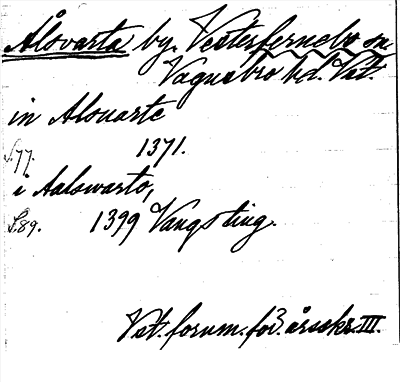 Ålsvarta by. Västerfernebo sn.
Vagnsbro hd. Vst.
in Alsuarte
s.77. 1371.
i Aalswarto,
s.89. 1399 Vangsting.
Vst. fornm. för. årsskr. III.